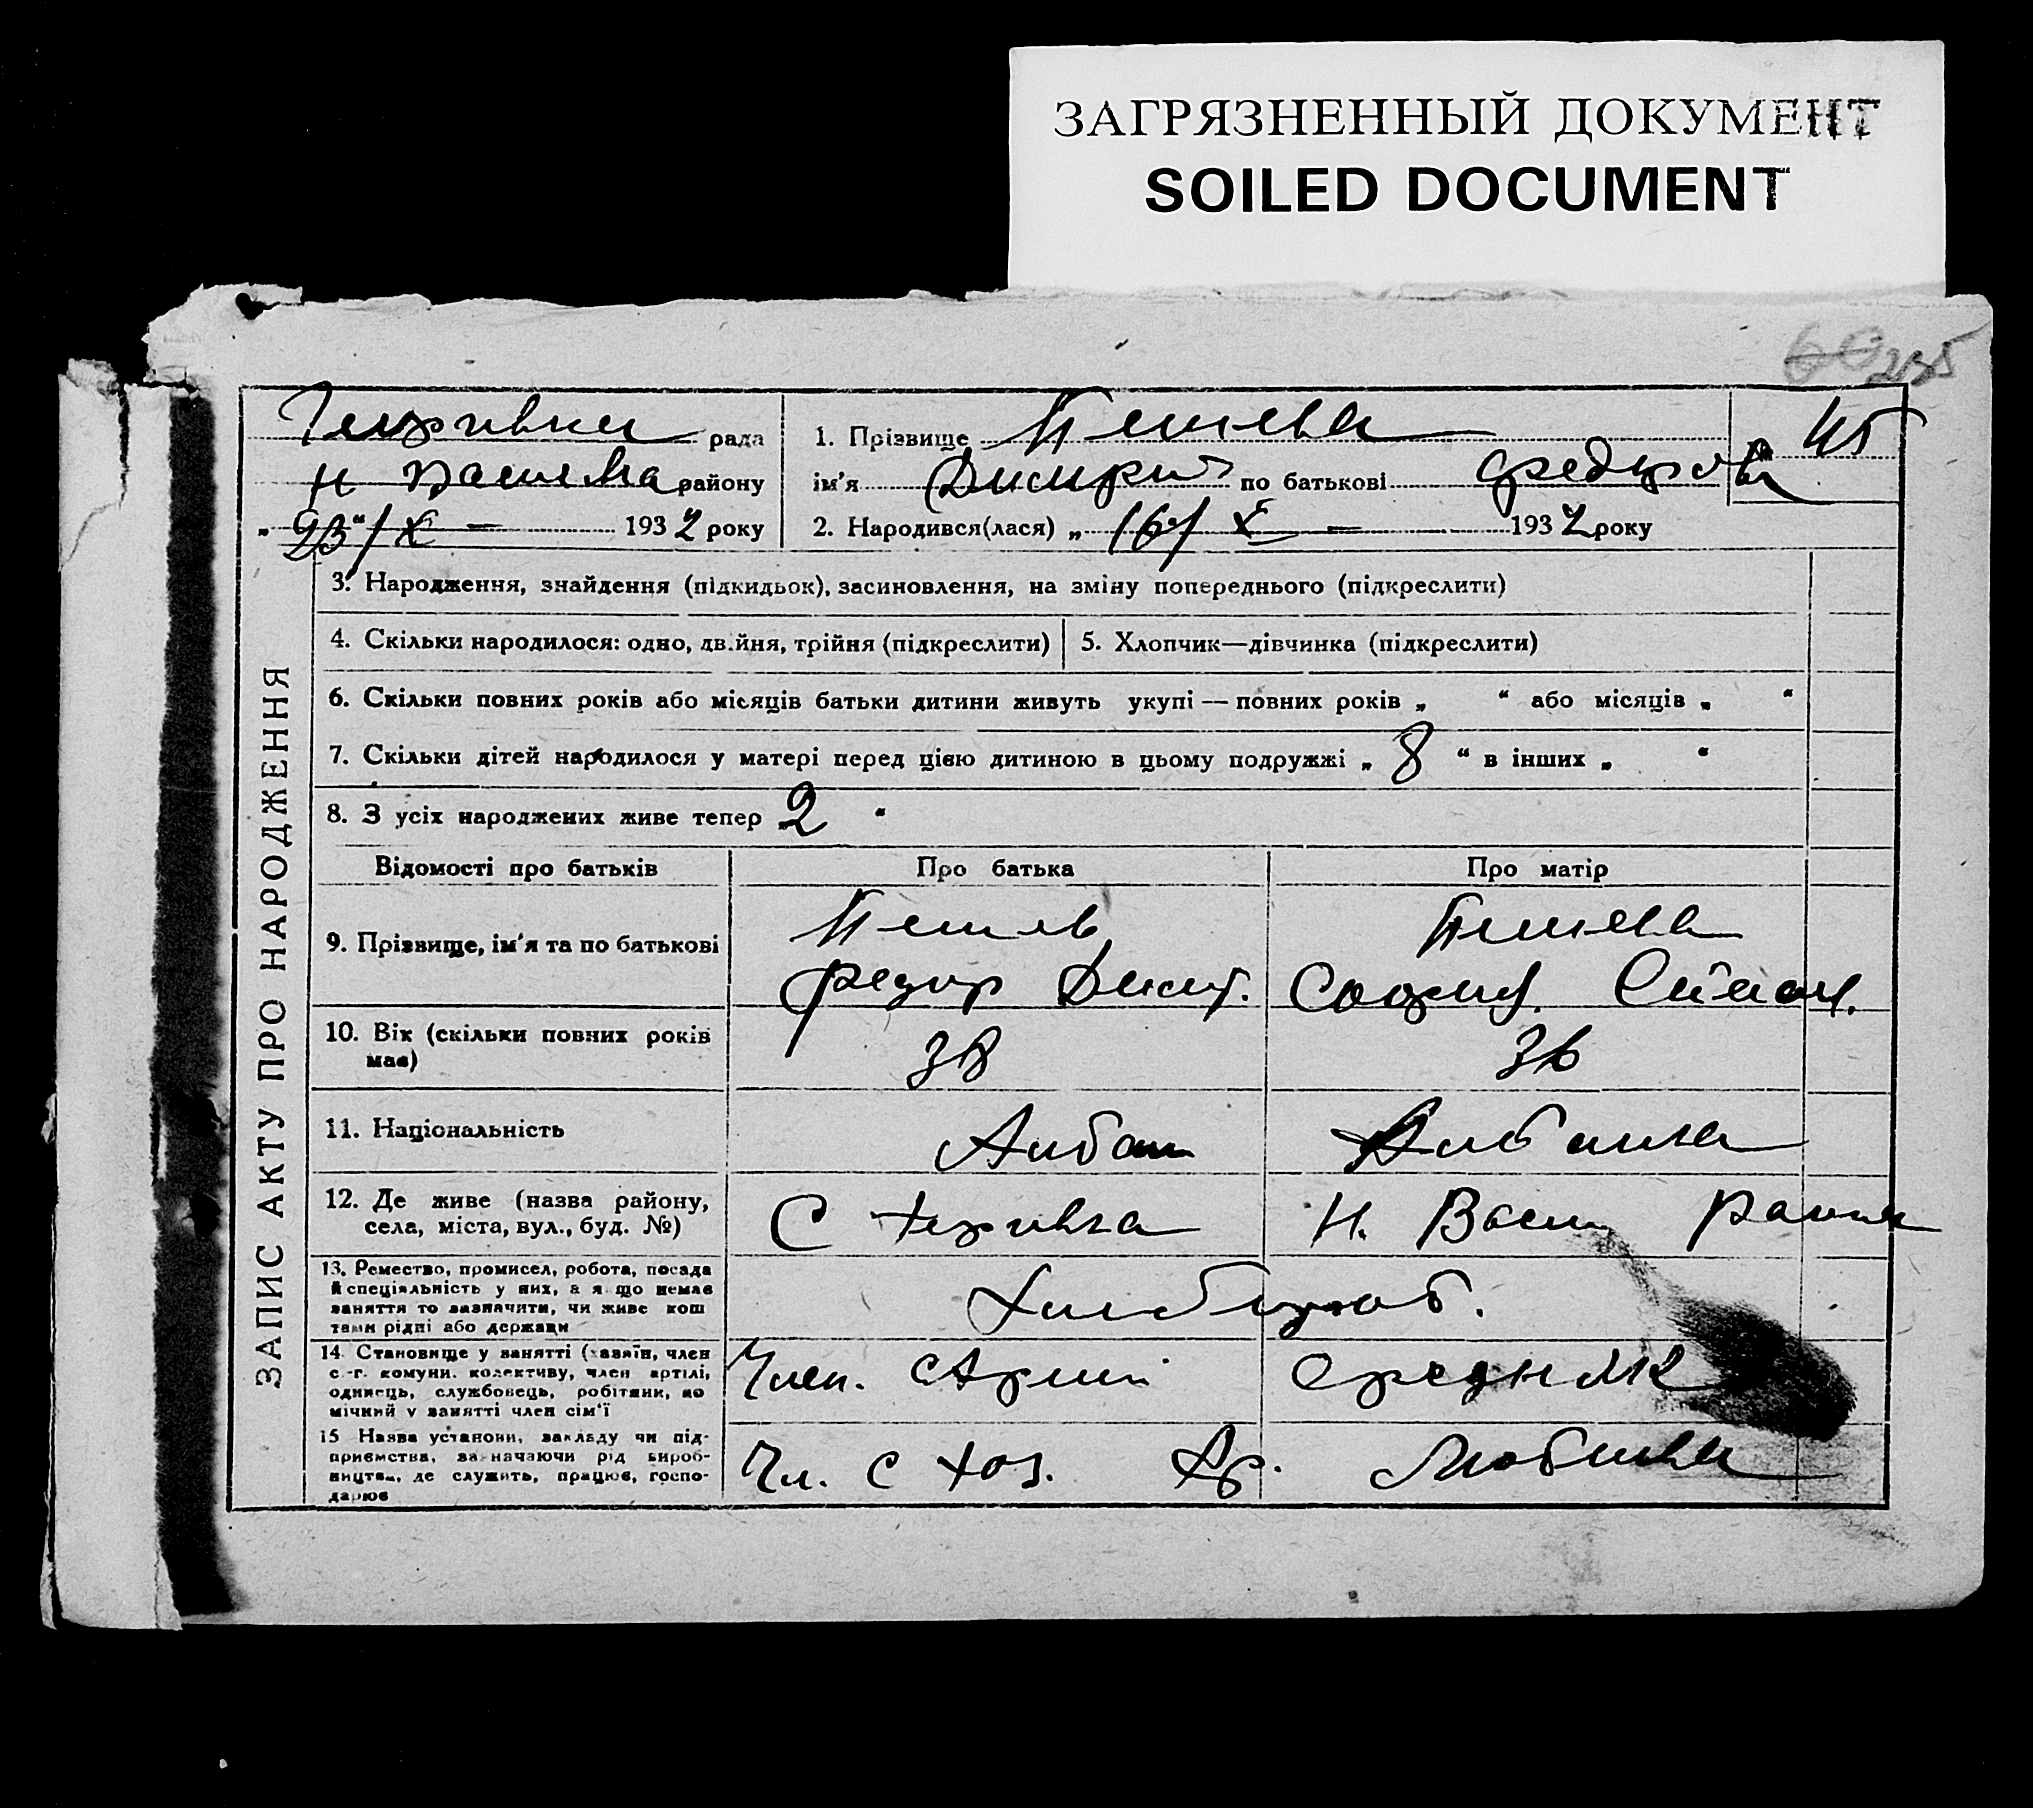 ЗАГРЯЗНЕННЫЙ ДОКУМЕНТ
SOILED DOCUMENT
235
рада
району
„ 23“/X — 1932 року
1. Прізвище
45
ім'я Дмитрий по батькові Федоров
2. Народився(лася) „ 16/ X — 1932 року
ЗАПИС АКТУ ПРО НАРОДЖЕННЯ
3. Народження, знайдення (підкидьок), засиновлення, на зміну попереднього (підкреслити)
4. Скільки народилося: одно, двійня, трійня (підкреслити)
5. Хлопчик—дівчинка (підкреслити)
6. Скільки повних років або місяців батьки дитини живуть укупі — повних років „ “ або місяців „ “
7. Скільки дітей народилося у матері перед цією дитиною в цьому подружжі „ 8 “ в інших „ “
8. З усіх народжених живе тепер „ 2 “
Відомості про батьків
Про батька
Про матір
9. Прізвище, ім'я та по батькові
Федир Дмит.
10. Вік (скільки повних років має)
38
36
11. Національність
Албан
Албанка
12. Де живе (назва району, села, міста, вул., буд. №)
С
Н. Васил
13. Ремество, промисел, робота, посада
й спеціяльність у них, а якщо немає
заняття то зазначити, чи живе кош
тами рідні або держави
Хлибороб.
14. Становище у занятті (хазяїн, член
с.-г. комуни. колективу, член артілі,
одинець, службовець, робітник, по
мічний у занятті член сім'ї
Член. с Артили
Середняк
15 Назва установи, закладу чи під-
приємства, зазначаючи рід вироб-
ництва, де служить, працює, госпо-
дарює
Чл. с хоз. Ар.